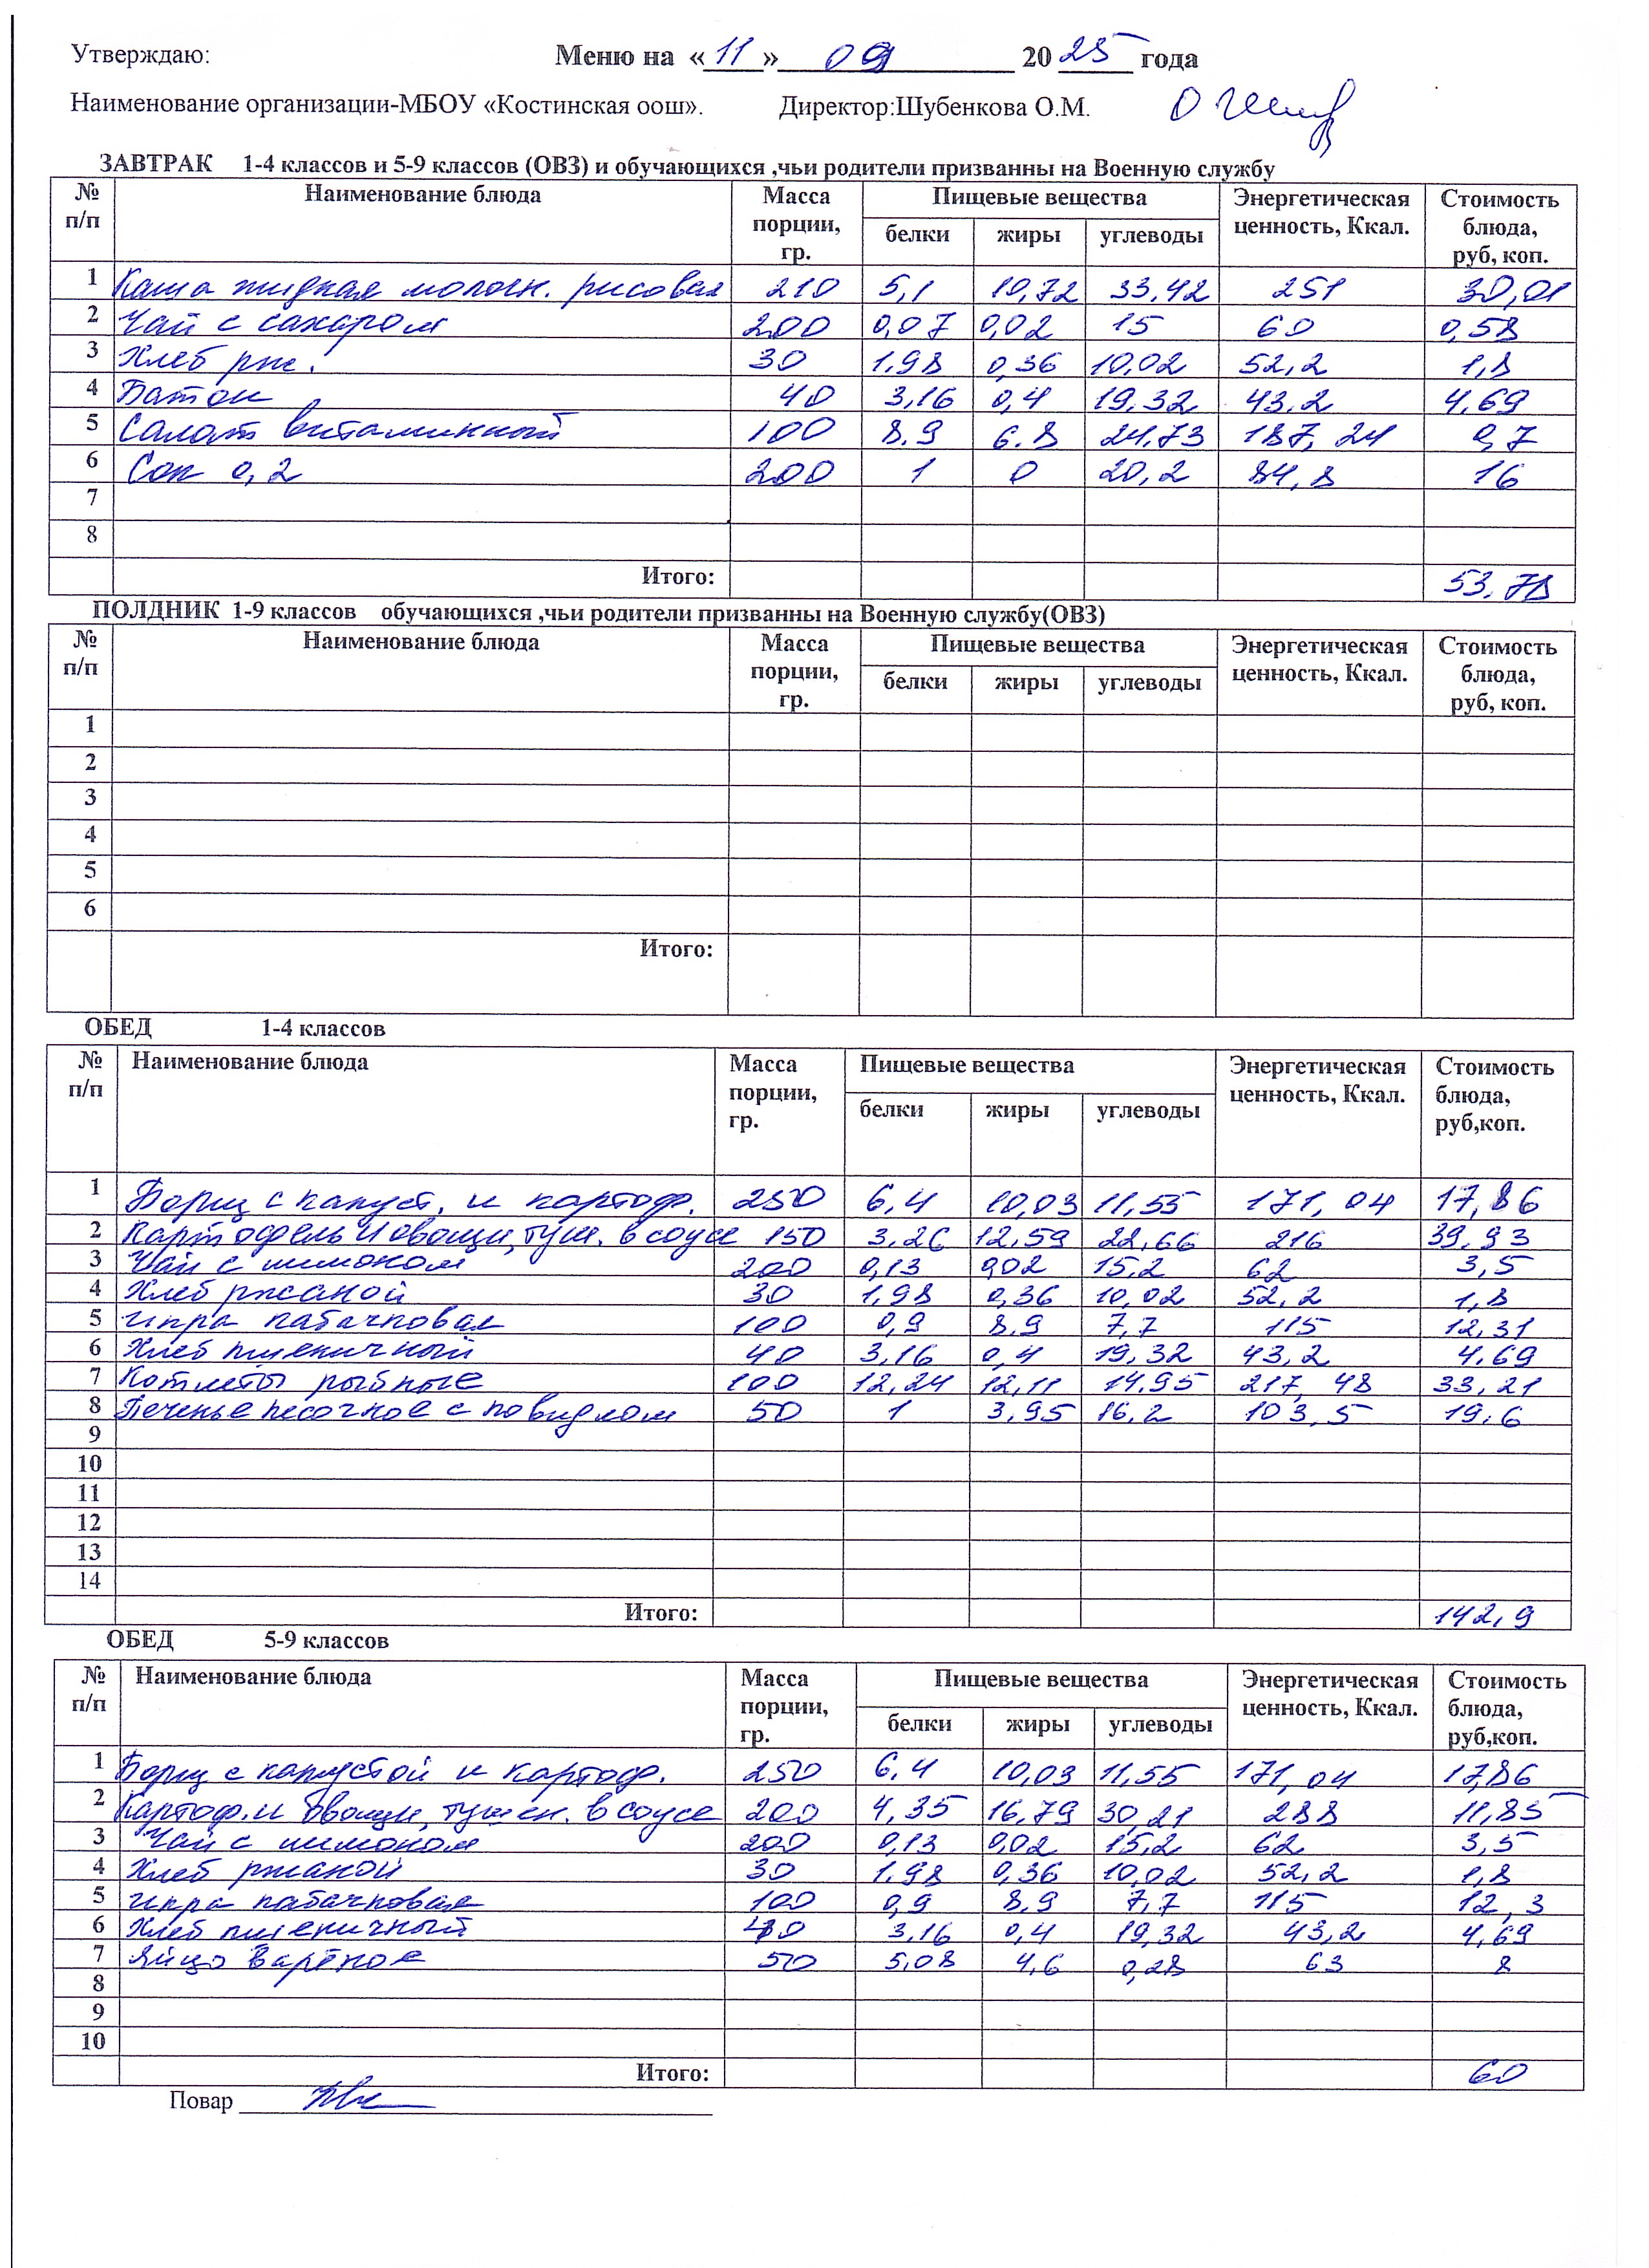 Утверждаю: Меню на «11» 09 2025 года
Наименование организации-МБОУ «Костинская оош». Директор:Шубенкова О.М.
ЗАВТРАК 1-4 классов и 5-9 классов (ОВЗ) и обучающихся ,чьи родители призванны на Военную службу
№ п/п Наименование блюда Масса порции, гр. Пищевые вещества Энергетическая ценность, Ккал. Стоимость блюда, руб, коп.
белки жиры углеводы
1 Каша жидкая молочн. рисовая 210 5,1 10,72 33,42 251 30,01
2 Чай с сахаром 200 0,07 0,02 15 60 0,58
3 Хлеб рж. 30 1,98 0,36 10,02 52,2 1,8
4 Батон 40 3,16 0,4 19,32 43,2 4,69
5 Салат витаминный 100 8,9 6.8 24,73 187,24 0,7
6 Сок 0,2 200 1 0 20,2 84,8 16
7
8
Итого: 53,78
ПОЛДНИК 1-9 классов обучающихся ,чьи родители призванны на Военную службу(ОВЗ)
№ п/п Наименование блюда Масса порции, гр. Пищевые вещества Энергетическая ценность, Ккал. Стоимость блюда, руб, коп.
белки жиры углеводы
1
2
3
4
5
6
Итого:
ОБЕД 1-4 классов
№ п/п Наименование блюда Масса порции, гр. Пищевые вещества Энергетическая ценность, Ккал. Стоимость блюда, руб,коп.
белки жиры углеводы
1 Борщ с капуст. и картоф. 250 6,4 10,03 11,55 171,04 17,86
2 Картофель и овощи, туш. в соусе 150 3,26 12,59 22,66 216 39,93
3 Чай с лимоном 200 0,13 0,02 15,2 62 3,5
4 Хлеб ржаной 30 1,98 0,36 10,02 52,2 1,8
5 Икра кабачковая 100 0,9 8,9 7,7 115 12,31
6 Хлеб пшеничный 40 3,16 0,4 19,32 43,2 4,69
7 Котлеты рыбные 100 12,24 12,11 14,95 217,48 33,21
8 Печенье песочное с повидлом 50 1 3,95 16,2 103,5 19,6
9
10
11
12
13
14
Итого: 142,9
ОБЕД 5-9 классов
№ п/п Наименование блюда Масса порции, гр. Пищевые вещества Энергетическая ценность, Ккал. Стоимость блюда, руб,коп.
белки жиры углеводы
1 Борщ с капустой и картоф. 250 6,4 10,03 11,55 171,04 17,86
2 Картоф. и овощи, тушен. в соусе 200 4,35 16,79 30,21 288 11,85
3 Чай с лимоном 200 0,13 0,02 15,2 62 3,5
4 Хлеб ржаной 30 1,98 0,36 10,02 52,2 1,8
5 Икра кабачковая 100 0,9 8,9 7,7 115 12,3
6 Хлеб пшеничный 40 3,16 0,4 19,32 43,2 4,69
7 Яйцо варёное 50 5,08 4,6 0,28 63 8
8
9
10
Итого: 60
Повар